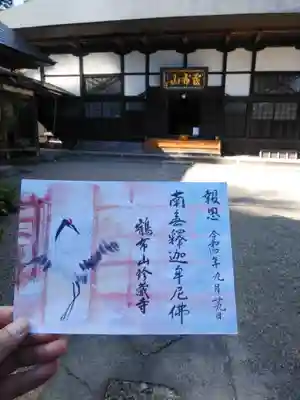 報恩 令和四年九月廿九日
南無釋迦牟尼佛
鶴布山珍蔵寺